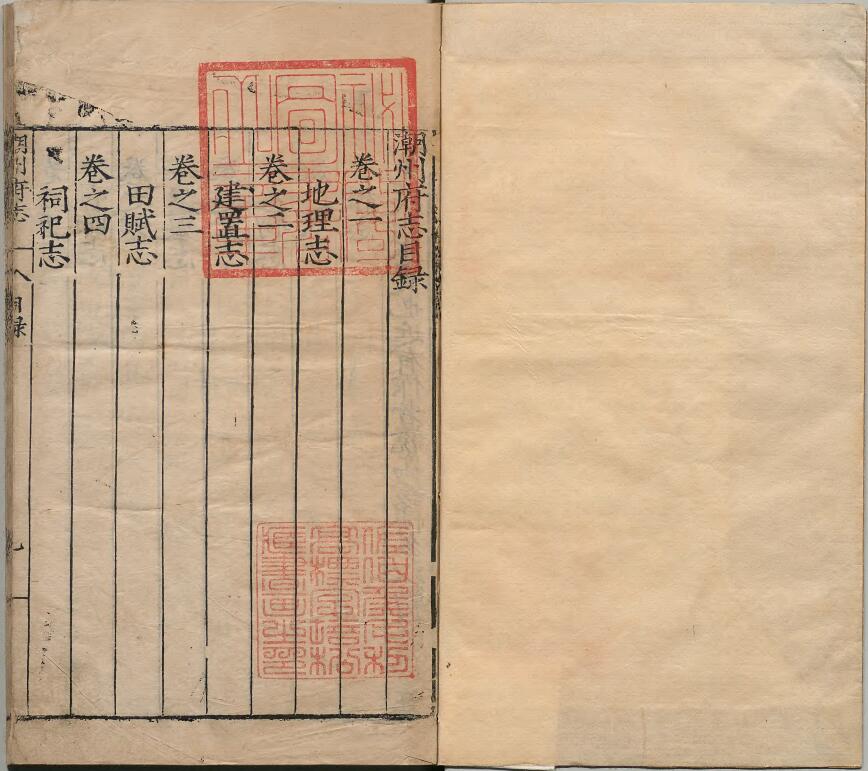 潮州府志目録
卷之一
地理志
卷之二
建置志
卷之三
田賦志
卷之四
祠祀志
潮州府志
目録